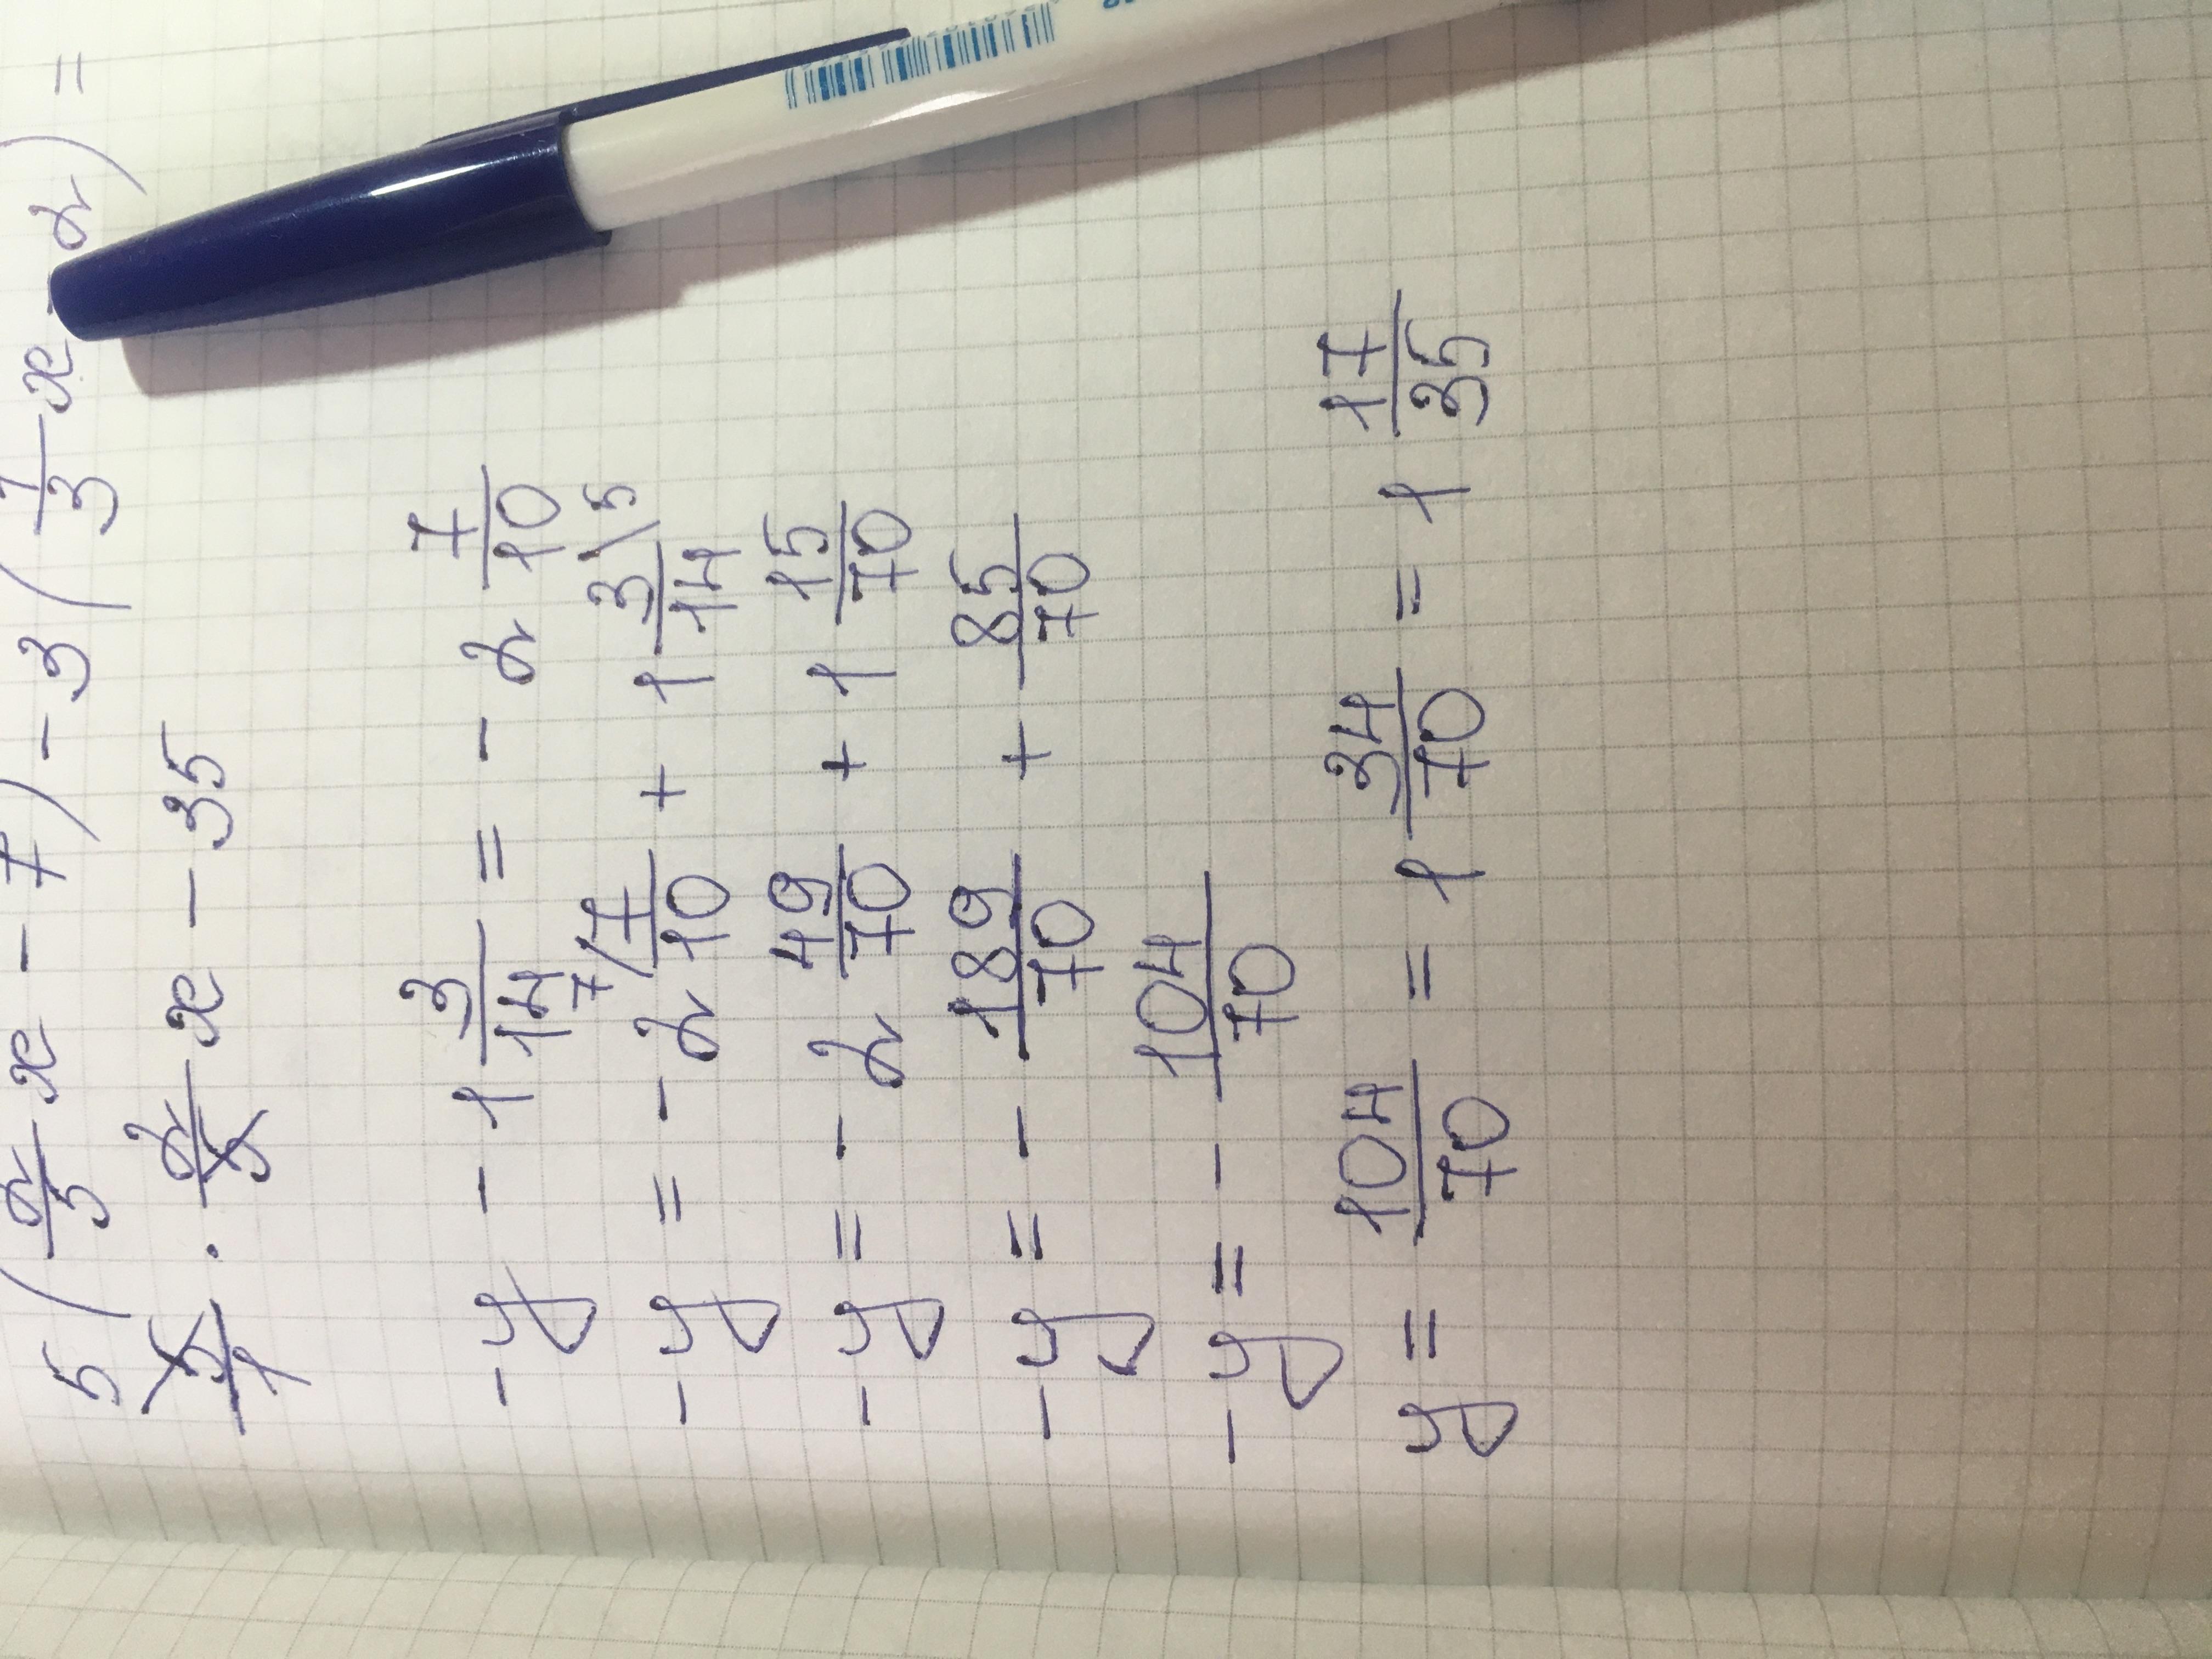 5(2/5 x - 7) - 3(1/3 x - 2) =
5/1 · 2/5 x - 35
- y - 1 3/14 = - 2 7/10
- y = - 2 7/10 + 1 3/14 \ 5
- y = - 2 49/70 + 1 15/70
- y = - 189/70 + 85/70
- y = - 104/70
y = 104/70 = 1 34/70 = 1 17/35